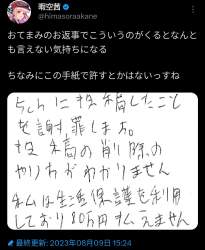 雨空茜
@himasoraakane
おてまみのお返事でこういうのがくるとなんと
も言えない気持ちになる
ちなみにこの手紙で許すとかはないっすね
5chに投稿したこと
を謝罪します。
投稿の削除の
やり方がわかりません
私は生活保護を利用
しており80万円 払えません
最終更新: 2023年08月09日 15:24